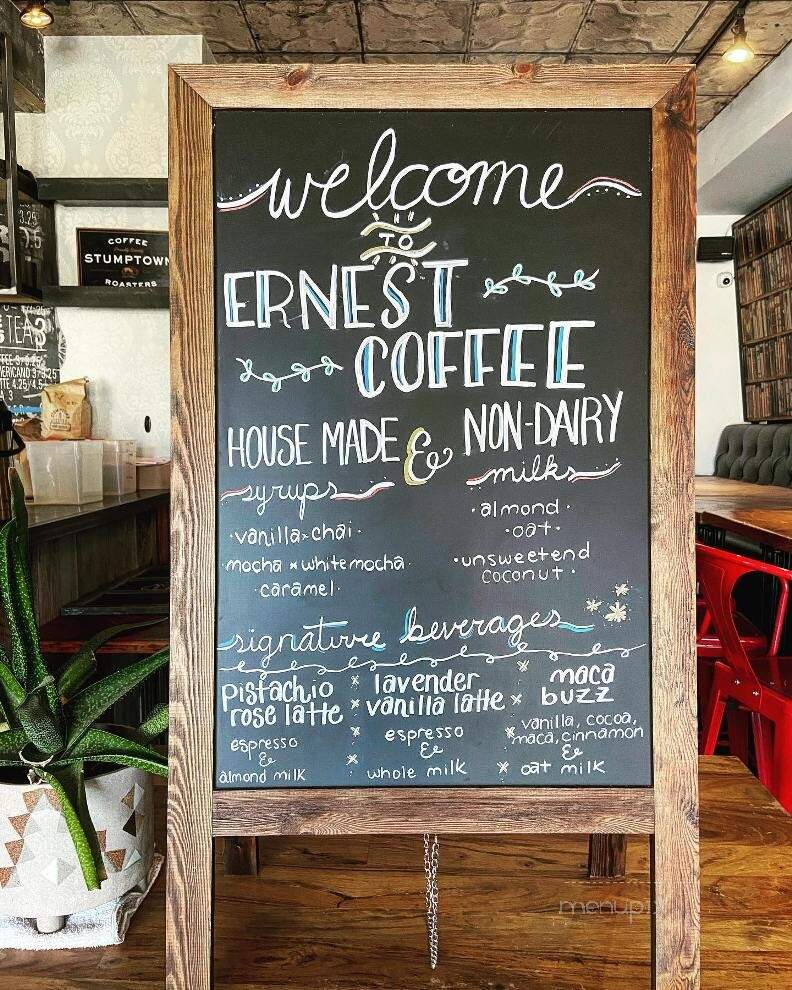 welcome
TO
ERNEST
COFFEE
HOUSE MADE & NON-DAIRY
syrups
milks
·vanilla × chai·
·mocha × white mocha·
·caramel·
·almond·
·oat·
·unsweetend
coconut·
signature beverages
pistachio
rose latte
espresso
&
almond milk
lavender
vanilla latte
espresso
&
whole milk
maca
buzz
vanilla, cocoa,
maca, cinnamon
&
oat milk
COFFEE
STUMPTOWN
ROASTERS
TEA